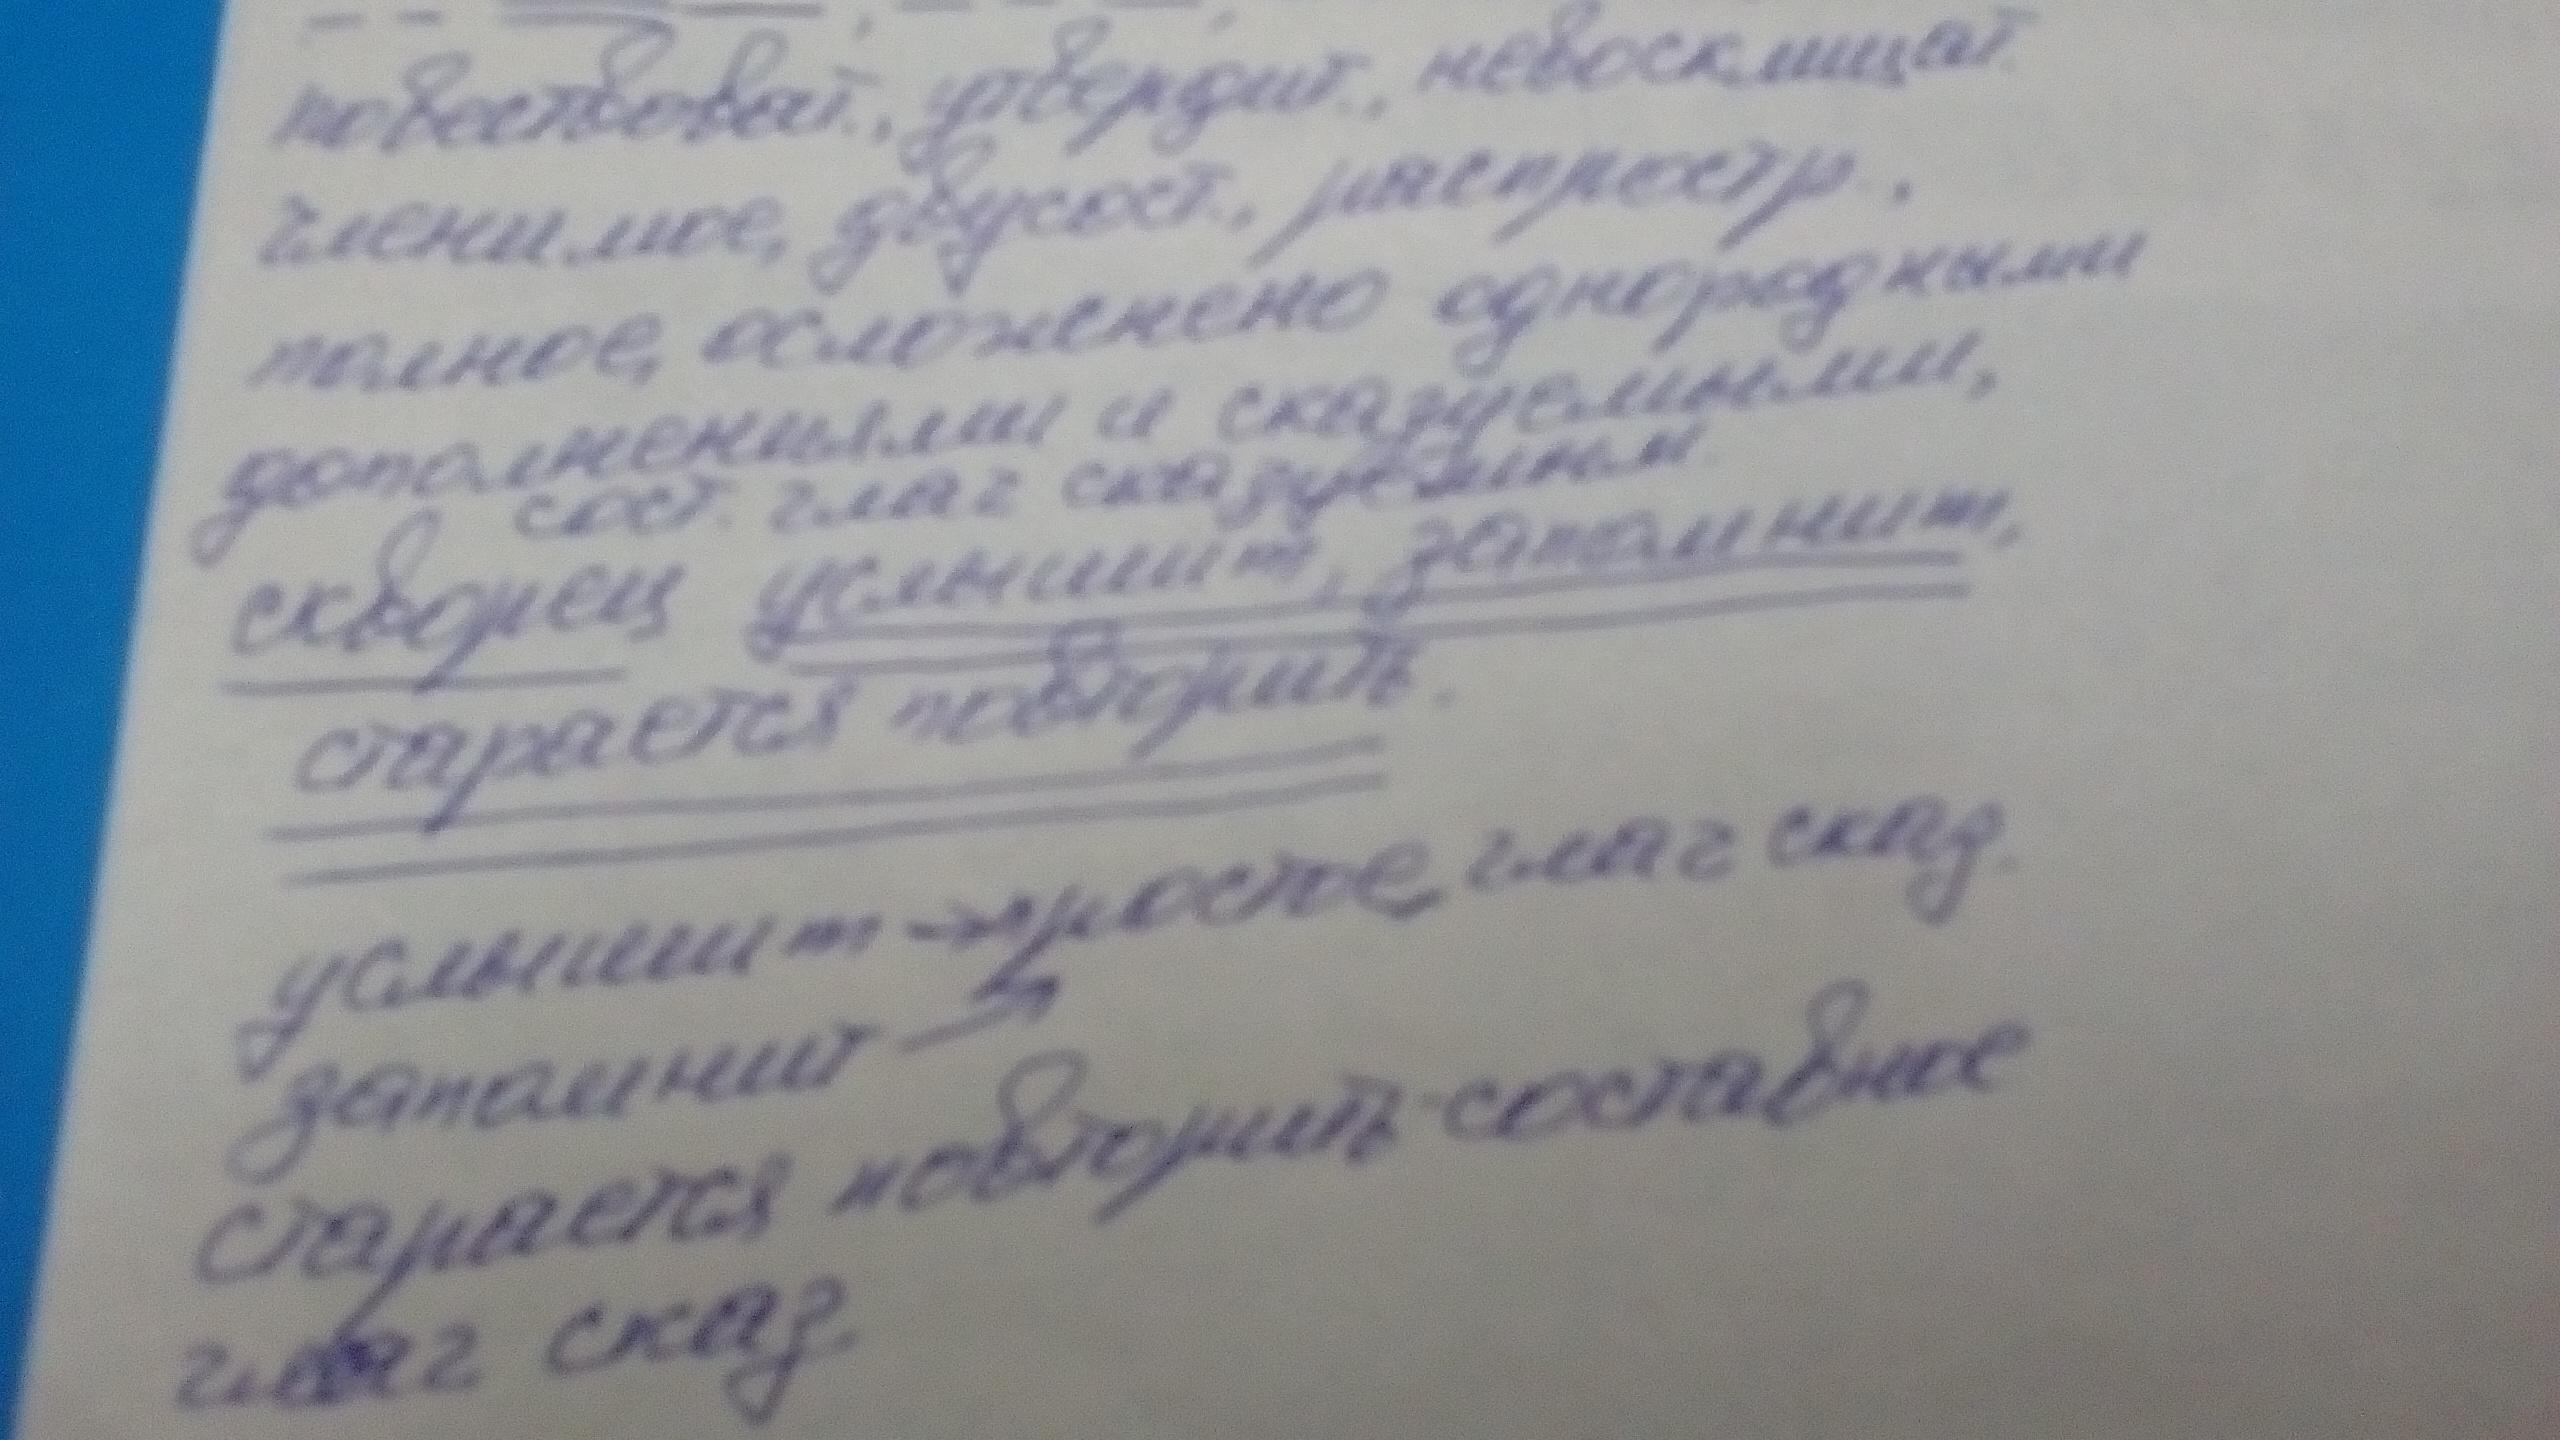 повествоват., утвердит., невосклицат.
членимое, двусост., распростр.,
полное, осложнено однородными
дополнениями и сказуемыми,
сост. глаг сказуемым.
скворец услышит, запомнит,
старается повторить.
услышит → простое глаг сказ.
запомнит →
старается повторить - составное
глаг сказ.